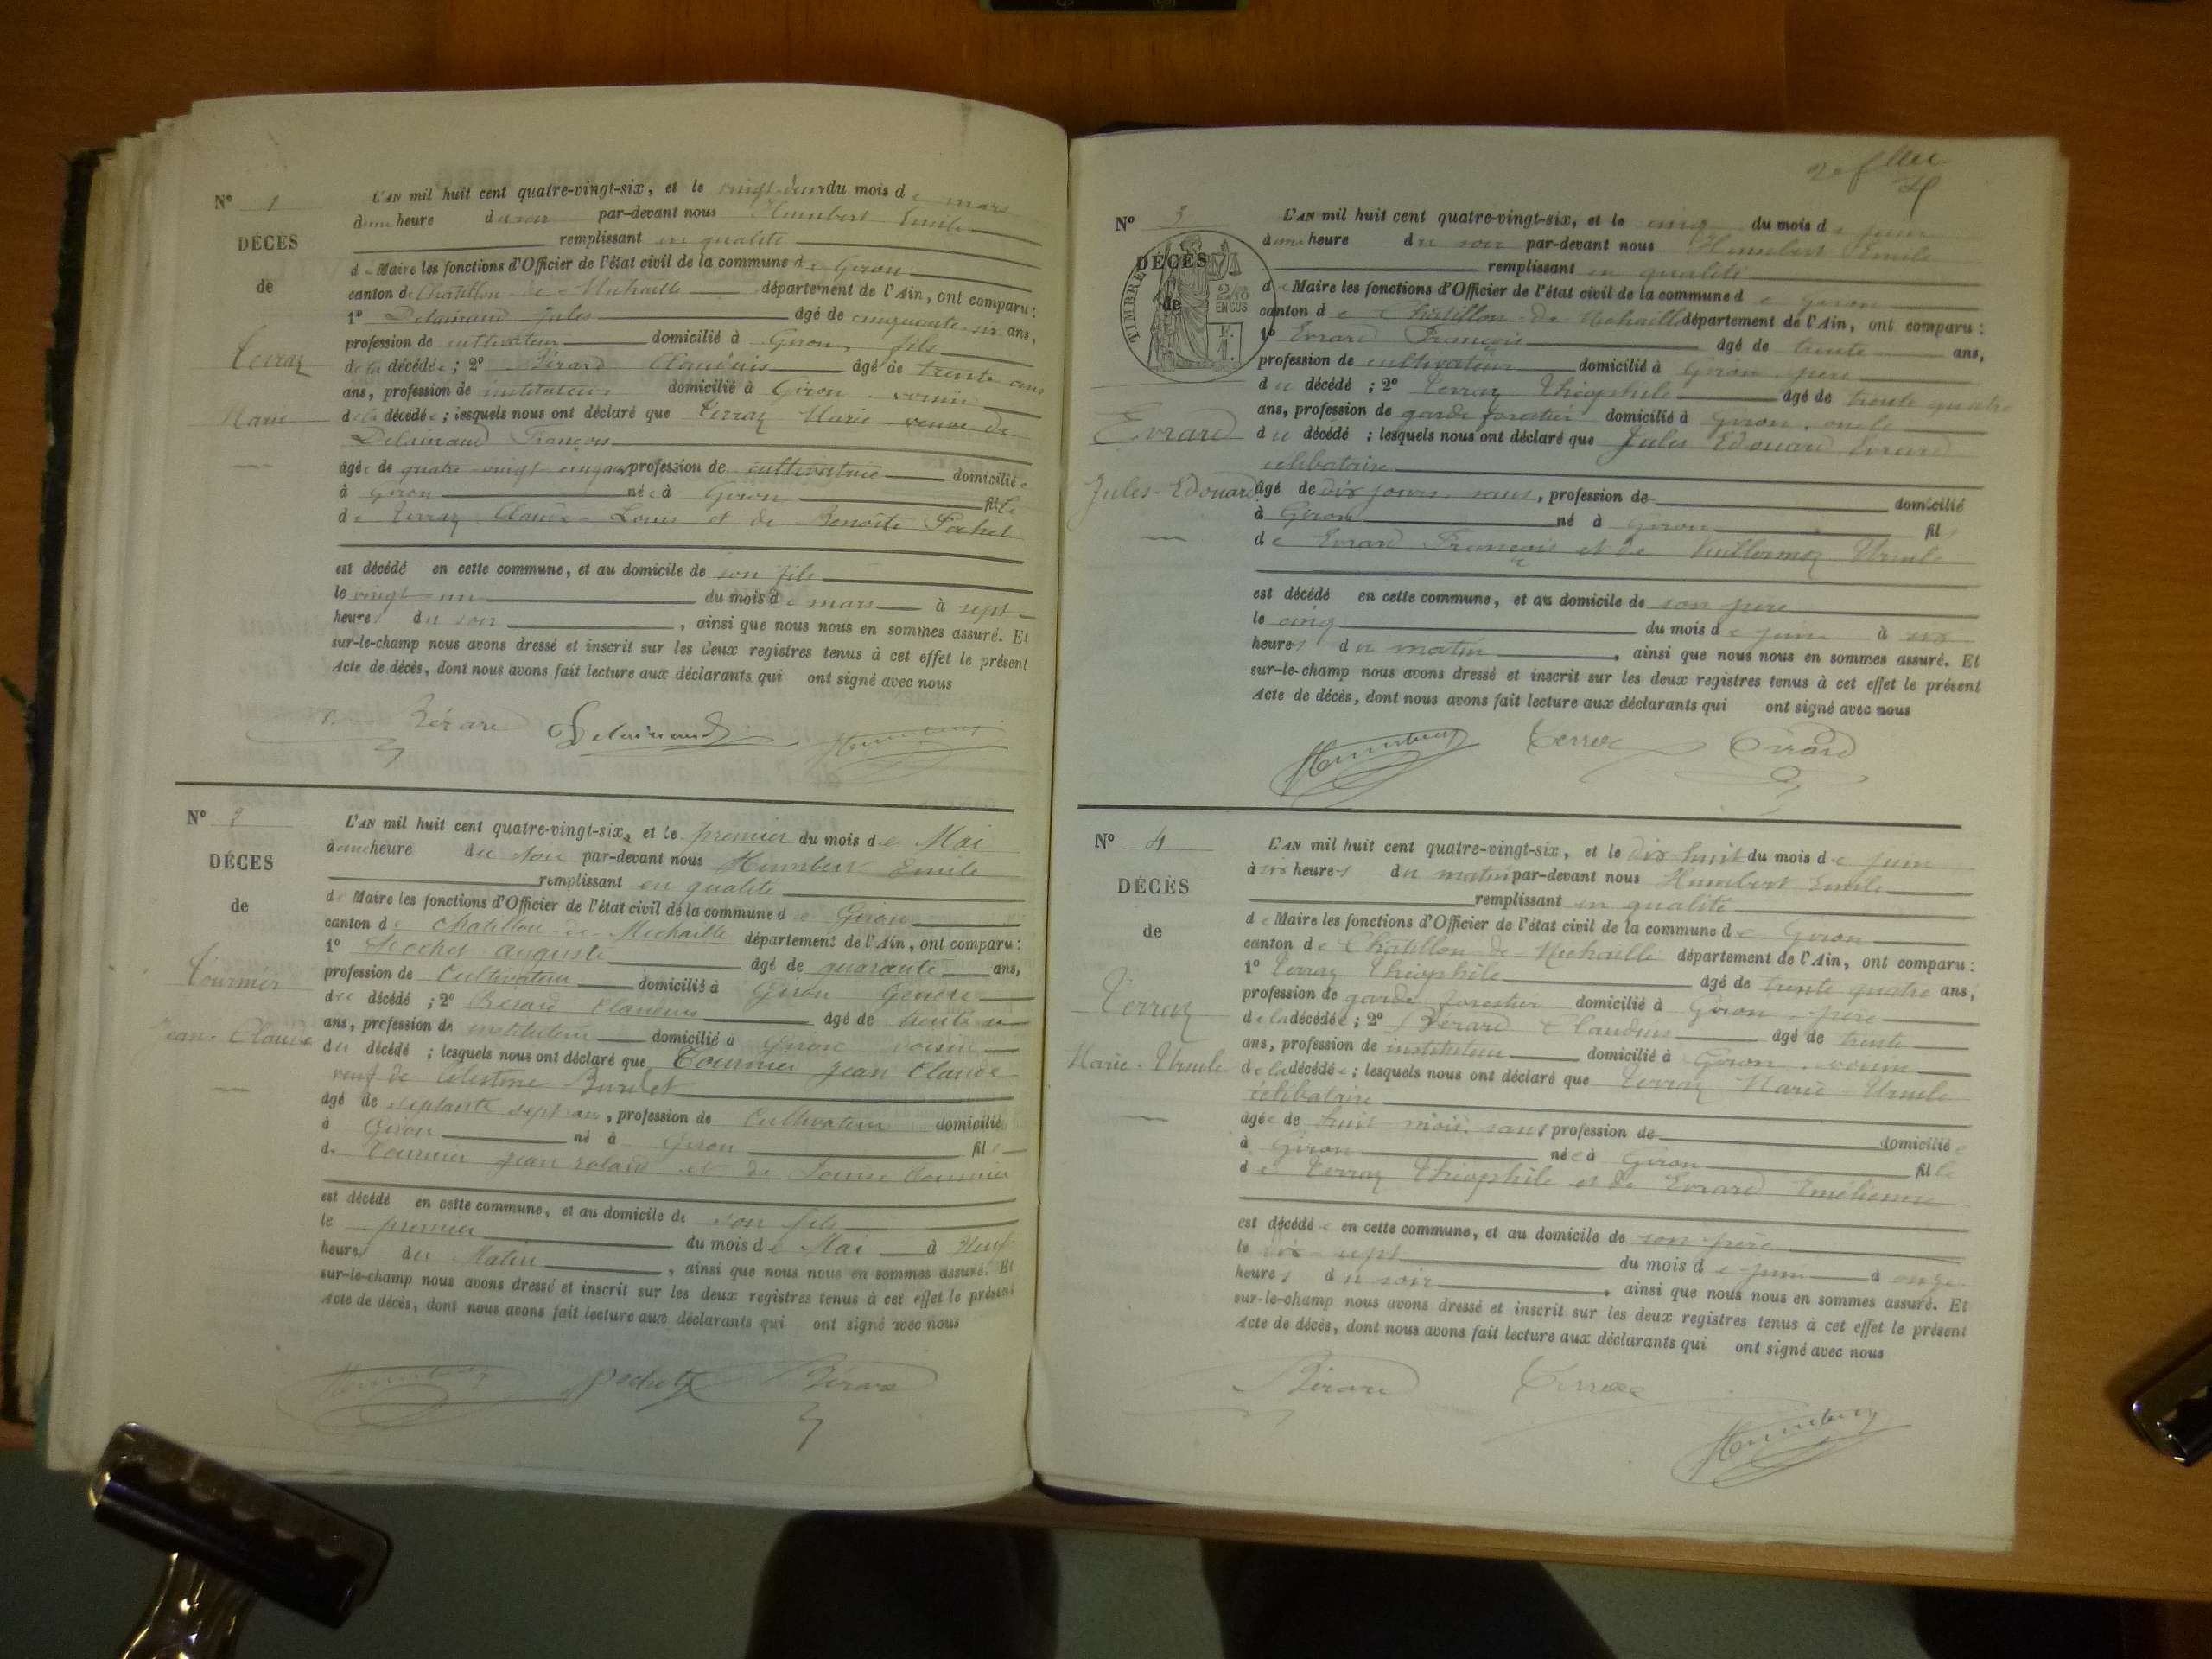 N° 1
DÉCÈS
de
Terraz
Marie
L'AN mil huit cent quatre-vingt-six, et le vingt-deux du mois de mars
à une heure du soir par-devant nous Humbert Emile
remplissant en qualité
de Maire les fonctions d'Officier de l'état civil de la commune de Giron
canton de Chatillon de Michaille département de l'Ain, ont comparu :
1° Delainaud Jules âgé de cinquante-six ans,
profession de cultivateur domicilié à Giron, fils
de la décédée ; 2° Bérard Claudius âgé de trente ans
ans, profession de instituteur domicilié à Giron, voisin
de la décédée ; lesquels nous ont déclaré que Terraz Marie veuve de
Delainaud François
âgée de quatre-vingt cinq ans, profession de cultivatrice domiciliée
à Giron née à Giron fille
de Terraz Claude-Louis et de Benoîte Pochet
est décédé en cette commune, et au domicile de son fils
le vingt-un du mois de mars à sept
heures du soir, ainsi que nous nous en sommes assuré. Et
sur-le-champ nous avons dressé et inscrit sur les deux registres tenus à cet effet le présent
Acte de décès, dont nous avons fait lecture aux déclarants qui ont signé avec nous
Bérard Delainaud Humbert
N° 2
DÉCÈS
de
Tournier
Jean-Claude
L'AN mil huit cent quatre-vingt-six, et le premier du mois de Mai
à une heure du soir par-devant nous Humbert Emile
remplissant en qualité
de Maire les fonctions d'Officier de l'état civil de la commune de Giron
canton de Chatillon de Michaille département de l'Ain, ont comparu :
1° Pochet auguste âgé de quarante ans,
profession de Cultivateur domicilié à Giron Gendre
du décédé ; 2° Bérard Claudius âgé de trente
ans, profession de instituteur domicilié à Giron voisin
du décédé ; lesquels nous ont déclaré que Tournier Jean Claude
veuf de Célestine Burdet
âgé de septante sept ans, profession de Cultivateur domicilié
à Giron né à Giron fils
de Tournier Jean Roland et de Louise Tournier
est décédé en cette commune, et au domicile de son fils
le premier du mois de Mai à Neuf
heures du Matin, ainsi que nous nous en sommes assuré. Et
sur-le-champ nous avons dressé et inscrit sur les deux registres tenus à cet effet le présent
Acte de décès, dont nous avons fait lecture aux déclarants qui ont signé avec nous
Humbert Pochet Bérard
N° 3
DÉCÈS
de
TIMBRE
2/10
EN SUS
Evrard
Jules-Edouard
L'AN mil huit cent quatre-vingt-six, et le cinq du mois de juin
à une heure du soir par-devant nous Humbert Emile
remplissant en qualité
de Maire les fonctions d'Officier de l'état civil de la commune de Giron
canton de Chatillon de Michaille département de l'Ain, ont comparu :
1° Evrard François âgé de trente ans,
profession de cultivateur domicilié à Giron, père
du décédé ; 2° Terraz Théophile âgé de trente quatre
ans, profession de garde forestier domicilié à Giron, oncle
du décédé ; lesquels nous ont déclaré que Jules Edouard Evrard
célibataire
âgé de dix jours, sans, profession de domicilié
à Giron né à Giron fils
de Evrard François et de Vuillermoz Ursule
est décédé en cette commune, et au domicile de son père
le cinq du mois de juin à six
heures du matin, ainsi que nous nous en sommes assuré. Et
sur-le-champ nous avons dressé et inscrit sur les deux registres tenus à cet effet le présent
Acte de décès, dont nous avons fait lecture aux déclarants qui ont signé avec nous
Humbert Terraz Evrard
N° 4
DÉCÈS
de
Terraz
Marie-Ursule
L'AN mil huit cent quatre-vingt-six, et le dix-huit du mois de juin
à six heures du matin par-devant nous Humbert Emile
remplissant en qualité
de Maire les fonctions d'Officier de l'état civil de la commune de Giron
canton de Chatillon de Michaille département de l'Ain, ont comparu :
1° Terraz Théophile âgé de trente quatre ans,
profession de garde forestier domicilié à Giron, père
de la décédée ; 2° Bérard Claudius âgé de trente
ans, profession de instituteur domicilié à Giron, voisin
de la décédée ; lesquels nous ont déclaré que Terraz Marie Ursule
célibataire
âgée de huit mois, sans profession de domiciliée
à Giron née à Giron fille
de Terraz Théophile et de Evrard Emélienne
est décédée en cette commune, et au domicile de son père
le dix-sept du mois de juin à onze
heures du soir, ainsi que nous nous en sommes assuré. Et
sur-le-champ nous avons dressé et inscrit sur les deux registres tenus à cet effet le présent
Acte de décès, dont nous avons fait lecture aux déclarants qui ont signé avec nous
Bérard Terraz
Humbert